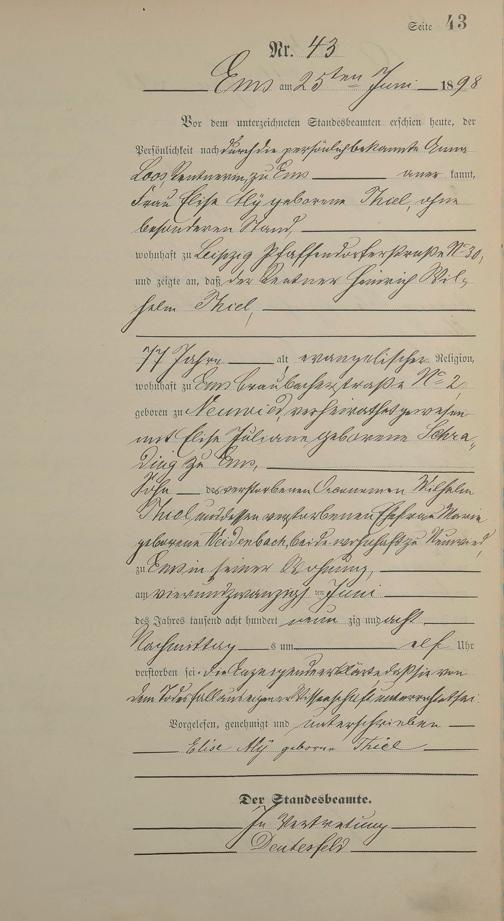 Seite 43
Nr. 43
Ems am 25ten Juni 1898
Vor dem unterzeichneten Standesbeamten erschien heute, der
Persönlichkeit nach durch die persönlich bekannte Anna
Loos, Rentnerin, zu Ems anerkannt,
Frau Elise Aly geborene Thiel, ohne
besonderen Stand,
wohnhaft zu Leipzig Pfaffendorferstraße No 30,
und zeigte an, daß der Rentner Heinrich Wil-
helm Thiel,
77 Jahre alt, evangelischer Religion,
wohnhaft zu Ems Braubacherstraße No 2,
geboren zu Neuwied, verheirathet gewesen
mit Elise Juliane geborene Schra-
ding zu Ems,
Sohn des verstorbenen Oeconomen Wilhelm
Thiel und dessen verstorbenen Ehefrau Marie
geborene Weidenbach, beide wohnhaft zu Neuwied,
zu Ems in seiner Wohnung,
am vierundzwanzigsten Juni
des Jahres tausend acht hundert neunzig und acht
Nachmittags um elf Uhr
verstorben sei. Die Anzeigende erklärte daß sie von
dem Todesfall aus eigener Wissenschaft unterrichtet sei.
Vorgelesen, genehmigt und unterschrieben
Elise Aly geborene Thiel
Der Standesbeamte.
In Vertretung
Deutesfeld